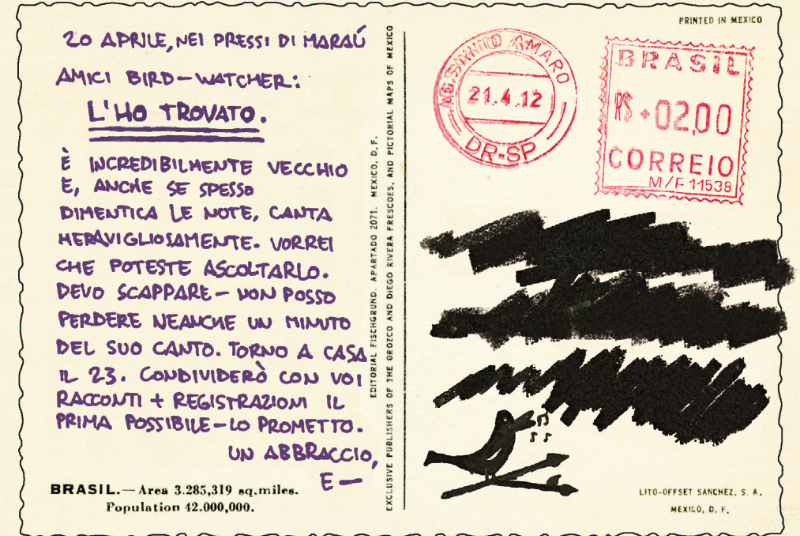 20 APRILE, NEI PRESSI DI MARAÚ
AMICI BIRD-WATCHER:
L'HO TROVATO.
È INCREDIBILMENTE VECCHIO
E, ANCHE SE SPESSO
DIMENTICA LE NOTE, CANTA
MERAVIGLIOSAMENTE. VORREI
CHE POTESTE ASCOLTARLO.
DEVO SCAPPARE – NON POSSO
PERDERE NEANCHE UN MINUTO
DEL SUO CANTO. TORNO A CASA
IL 23. CONDIVIDERÒ CON VOI
RACCONTI + REGISTRAZIONI IL
PRIMA POSSIBILE – LO PROMETTO.
UN ABBRACCIO,
E —
BRASIL.—Area 3.285,319 sq.miles.
Population 42.000,000.
EDITORIAL FISCHGRUND. APARTADO 2071. MEXICO, D. F.
EXCLUSIVE PUBLISHERS OF THE OROZCO AND DIEGO RIVERA FRESCOES, AND PICTORIAL MAPS OF MEXICO
PRINTED IN MEXICO
AG. SANTO AMARO
21.4.12
DR-SP
BRASIL
R$ +02,00
CORREIO
M/F 11538
LITO-OFFSET SANCHEZ, S. A.
MEXICO, D. F.